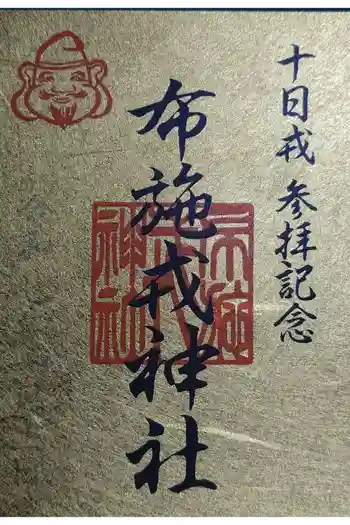 十日戎 参拝記念
布施戎神社
布施戎神社